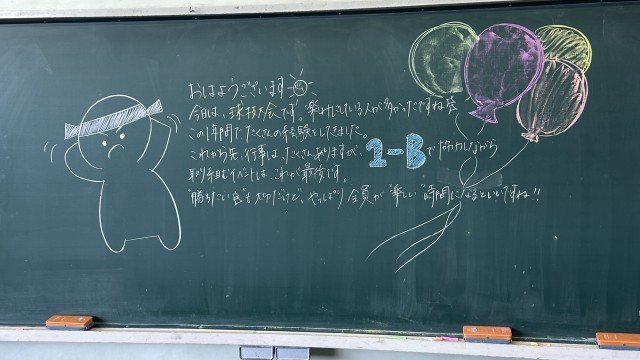 おはようございます
今日は、球技大会です。楽しみにしている人が多かったですね
この時間でたくさんの経験をしてきました。
これから先、行事は、たくさんありますが、1-Bで協力しながら
取り組むイベントは、これが最後です。
"勝ちたい"も大切だけど、やっぱり全員が"楽しい"時間になるといいですね!!